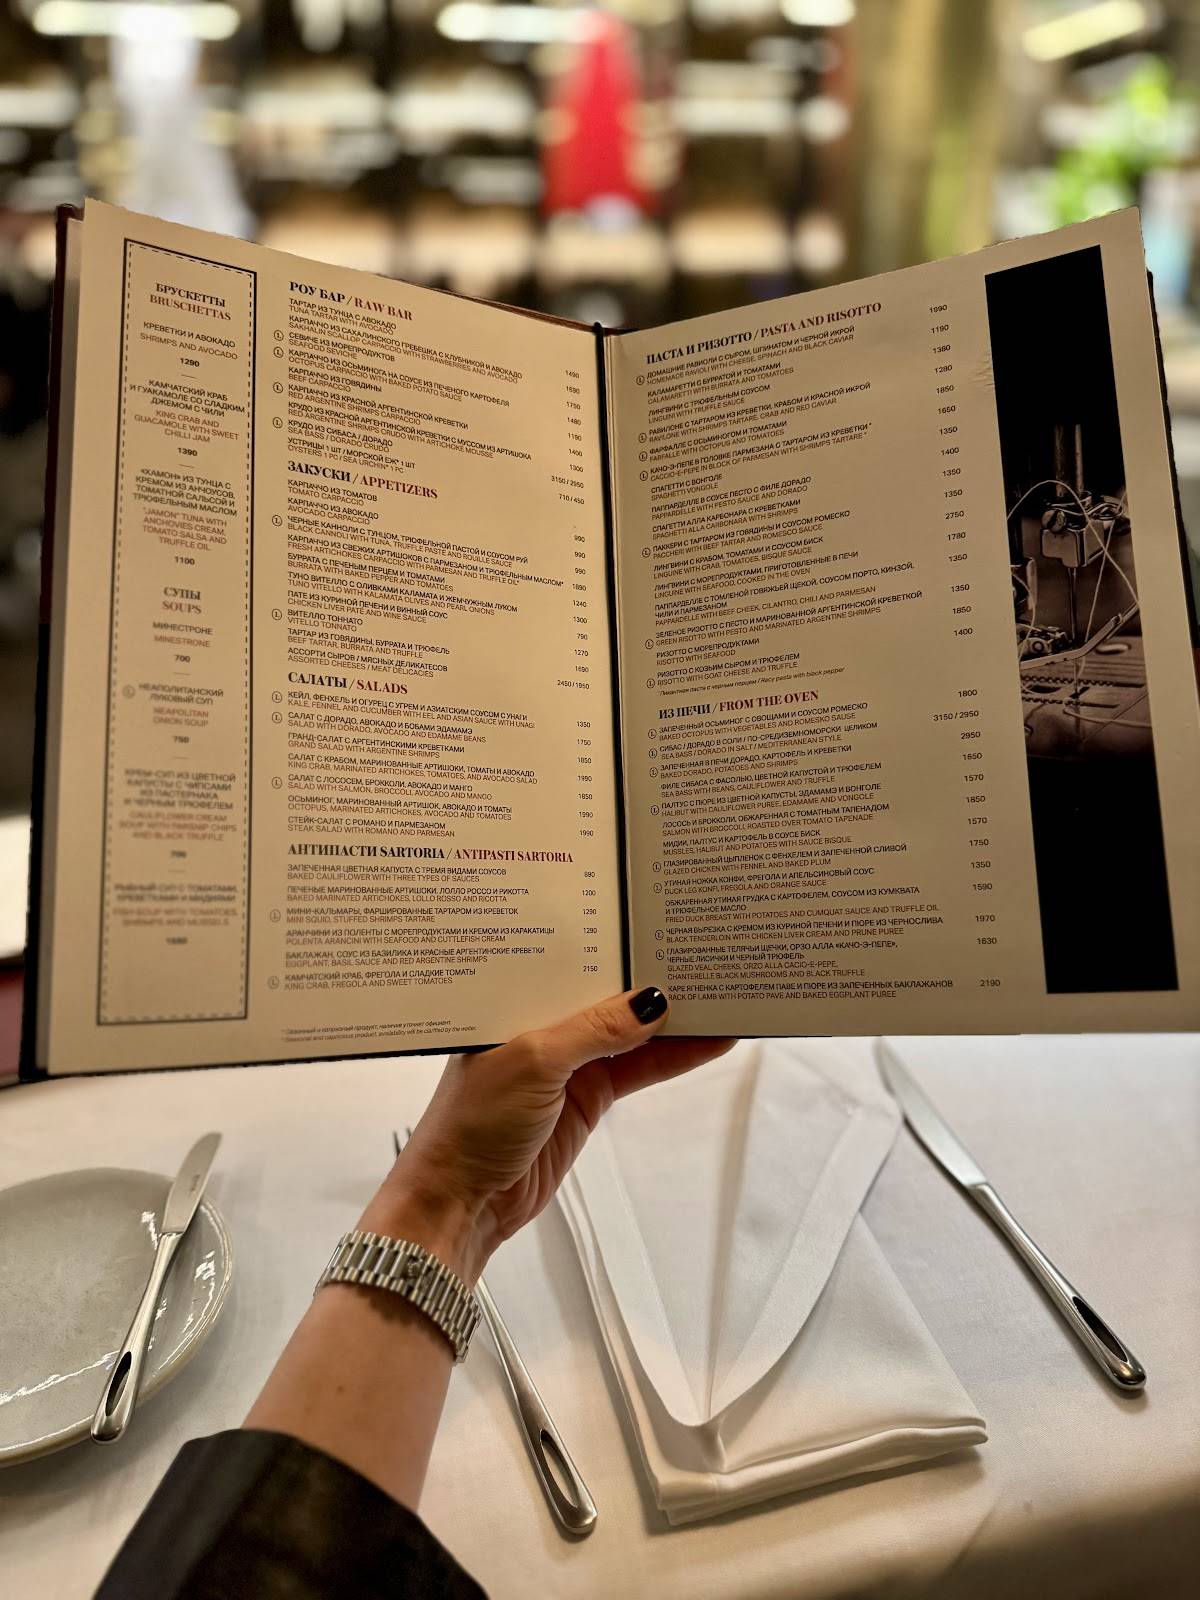 БРУСКЕТТЫ
BRUSCHETTAS
КРЕВЕТКИ И АВОКАДО
SHRIMPS AND AVOCADO
1290
КАМЧАТСКИЙ КРАБ
И ГУАКАМОЛЕ СО СЛАДКИМ
ДЖЕМОМ С ЧИЛИ
KING CRAB AND
GUACAMOLE WITH SWEET
CHILLI JAM
1390
«ХАМОН» ИЗ ТУНЦА С
КРЕМОМ ИЗ АНЧОУСОВ,
ТОМАТНОЙ САЛЬСОЙ И
ТРЮФЕЛЬНЫМ МАСЛОМ
"JAMON" TUNA WITH
ANCHOVIES CREAM,
TOMATO SALSA AND
TRUFFLE OIL
1100
СУПЫ
SOUPS
МИНЕСТРОНЕ
MINESTRONE
700
НЕАПОЛИТАНСКИЙ
ЛУКОВЫЙ СУП
NEAPOLITAN
ONION SOUP
750
КРЕМ-СУП ИЗ ЦВЕТНОЙ
КАПУСТЫ С ЧИПСАМИ
ИЗ ПАСТЕРНАКА
И ЧЕРНЫМ ТРЮФЕЛЕМ
CAULIFLOWER CREAM
SOUP WITH PARSNIP CHIPS
AND BLACK TRUFFLE
РЫБНЫЙ СУП С ТОМАТАМИ,
КРЕВЕТКАМИ И МИДИЯМИ
FISH SOUP WITH TOMATOES,
SHRIMPS AND MUSSELS
РОУ БАР / RAW BAR
ТАРТАР ИЗ ТУНЦА С АВОКАДО
TUNA TARTAR WITH AVOCADO
КАРПАЧЧО ИЗ САХАЛИНСКОГО ГРЕБЕШКА С КЛУБНИКОЙ И АВОКАДО 1490
SAKHALIN SCALLOP CARPACCIO WITH STRAWBERRIES AND AVOCADO
СЕВИЧЕ ИЗ МОРЕПРОДУКТОВ 1690
SEAFOOD SEVICHE
КАРПАЧЧО ИЗ ОСЬМИНОГА НА СОУСЕ ИЗ ПЕЧЕНОГО КАРТОФЕЛЯ 1750
OCTOPUS CARPACCIO WITH BAKED POTATO SAUCE
КАРПАЧЧО ИЗ ГОВЯДИНЫ 1480
BEEF CARPACCIO
КАРПАЧЧО ИЗ КРАСНОЙ АРГЕНТИНСКОЙ КРЕВЕТКИ 1190
RED ARGENTINE SHRIMPS CARPACCIO
КРУДО ИЗ КРАСНОЙ АРГЕНТИНСКОЙ КРЕВЕТКИ С МУССОМ ИЗ АРТИШОКА 1400
RED ARGENTINE SHRIMPS CRUDO WITH ARTICHOKE MOUSSE
КРУДО ИЗ СИБАСА / ДОРАДО 1300
SEA BASS / DORADO CRUDO
УСТРИЦЫ 1 ШТ / МОРСКОЙ ЕЖ* 1 ШТ 3150 / 2950
OYSTERS 1 PC / SEA URCHIN* 1 PC 710 / 450
ЗАКУСКИ / APPETIZERS
КАРПАЧЧО ИЗ ТОМАТОВ
TOMATO CARPACCIO
КАРПАЧЧО ИЗ АВОКАДО 990
AVOCADO CARPACCIO
ЧЕРНЫЕ КАННОЛИ С ТУНЦОМ, ТРЮФЕЛЬНОЙ ПАСТОЙ И СОУСОМ РУЙ 990
BLACK CANNOLI WITH TUNA, TRUFFLE PASTE AND ROUILLE SAUCE
КАРПАЧЧО ИЗ СВЕЖИХ АРТИШОКОВ С ПАРМЕЗАНОМ И ТРЮФЕЛЬНЫМ МАСЛОМ* 990
FRESH ARTICHOKES CARPACCIO WITH PARMESAN AND TRUFFLE OIL* 1890
БУРРАТА С ПЕЧЕНЫМ ПЕРЦЕМ И ТОМАТАМИ
BURRATA WITH BAKED PEPPER AND TOMATOES 1240
ТУНО ВИТЕЛЛО С ОЛИВКАМИ КАЛАМАТА И ЖЕМЧУЖНЫМ ЛУКОМ
TUNO VITELLO WITH KALAMATA OLIVES AND PEARL ONIONS 1300
ПАТЕ ИЗ КУРИНОЙ ПЕЧЕНИ И ВИННЫЙ СОУС
CHICKEN LIVER PATÉ AND WINE SAUCE 790
ВИТЕЛЛО ТОННАТО
VITELLO TONNATO 1270
ТАРТАР ИЗ ГОВЯДИНЫ, БУРРАТА И ТРЮФЕЛЬ
BEEF TARTAR, BURRATA AND TRUFFLE 1690
АССОРТИ СЫРОВ / МЯСНЫХ ДЕЛИКАТЕСОВ
ASSORTED CHEESES / MEAT DELICACIES 2450 / 1950
САЛАТЫ / SALADS
КЕЙЛ, ФЕНХЕЛЬ И ОГУРЕЦ С УГРЕМ И АЗИАТСКИМ СОУСОМ С УНАГИ
KALE, FENNEL AND CUCUMBER WITH EEL AND ASIAN SAUCE WITH UNAGI 1350
САЛАТ С ДОРАДО, АВОКАДО И БОБАМИ ЭДАМАМЭ
SALAD WITH DORADO, AVOCADO AND EDAMAME BEANS 1750
ГРАНД-САЛАТ С АРГЕНТИНСКИМИ КРЕВЕТКАМИ
GRAND SALAD WITH ARGENTINE SHRIMPS 1850
САЛАТ С КРАБОМ, МАРИНОВАННЫЕ АРТИШОКИ, ТОМАТЫ И АВОКАДО
KING CRAB, MARINATED ARTICHOKES, TOMATOES, AND AVOCADO SALAD 1990
САЛАТ С ЛОСОСЕМ, БРОККОЛИ, АВОКАДО И МАНГО
SALAD WITH SALMON, BROCCOLI, AVOCADO AND MANGO 1850
ОСЬМИНОГ, МАРИНОВАННЫЙ АРТИШОК, АВОКАДО И ТОМАТЫ
OCTOPUS, MARINATED ARTICHOKES, AVOCADO AND TOMATOES 1990
СТЕЙК-САЛАТ С РОМАНО И ПАРМЕЗАНОМ
STEAK SALAD WITH ROMANO AND PARMESAN 1990
АНТИПАСТИ SARTORIA / ANTIPASTI SARTORIA
ЗАПЕЧЕННАЯ ЦВЕТНАЯ КАПУСТА С ТРЕМЯ ВИДАМИ СОУСОВ 890
BAKED CAULIFLOWER WITH THREE TYPES OF SAUCES
ПЕЧЕНЫЕ МАРИНОВАННЫЕ АРТИШОКИ, ЛОЛЛО РОССО И РИКОТТА 1200
BAKED MARINATED ARTICHOKES, LOLLO ROSSO AND RICOTTA
МИНИ-КАЛЬМАРЫ, ФАРШИРОВАННЫЕ ТАРТАРОМ ИЗ КРЕВЕТОК 1290
MINI SQUID, STUFFED SHRIMPS TARTARE
АРАНЧИНИ ИЗ ПОЛЕНТЫ С МОРЕПРОДУКТАМИ И КРЕМОМ ИЗ КАРАКАТИЦЫ 1290
POLENTA ARANCINI WITH SEAFOOD AND CUTTLEFISH CREAM
БАКЛАЖАН, СОУС ИЗ БАЗИЛИКА И КРАСНЫЕ АРГЕНТИНСКИЕ КРЕВЕТКИ 1370
EGGPLANT, BASIL SAUCE AND RED ARGENTINE SHRIMPS
КАМЧАТСКИЙ КРАБ, ФРЕГОЛА И СЛАДКИЕ ТОМАТЫ 2150
KING CRAB, FREGOLA AND SWEET TOMATOES
* Сезонный и капризный продукт, наличие уточнит официант.
* Seasonal and capricious product, availability will be clarified by the waiter.
ПАСТА И РИЗОТТО / PASTA AND RISOTTO
ДОМАШНИЕ РАВИОЛИ С СЫРОМ, ШПИНАТОМ И ЧЕРНОЙ ИКРОЙ 1990
HOMEMADE RAVIOLI WITH CHEESE, SPINACH AND BLACK CAVIAR
КАЛАМАРЕТТИ С БУРРАТОЙ И ТОМАТАМИ 1190
CALAMARETTI WITH BURRATA AND TOMATOES
ЛИНГВИНИ С ТРЮФЕЛЬНЫМ СОУСОМ 1380
LINGUINI WITH TRUFFLE SAUCE
РАВИЛОНЕ С ТАРТАРОМ ИЗ КРЕВЕТКИ, КРАБОМ И КРАСНОЙ ИКРОЙ 1280
RAVILONE WITH SHRIMPS TARTARE, CRAB AND RED CAVIAR
ФАРФАЛЛЕ С ОСЬМИНОГОМ И ТОМАТАМИ 1850
FARFALLE WITH OCTOPUS AND TOMATOES
КАЧО-Э-ПЕПЕ В ГОЛОВКЕ ПАРМЕЗАНА С ТАРТАРОМ ИЗ КРЕВЕТКИ * 1650
CACCIO-E-PEPE IN BLOCK OF PARMESAN WITH SHRIMPS TARTARE *
СПАГЕТТИ С ВОНГОЛЕ 1350
SPAGHETTI VONGOLE
ПАППАРДЕЛЛЕ В СОУСЕ ПЕСТО С ФИЛЕ ДОРАДО 1400
PAPPARDELLE WITH PESTO SAUCE AND DORADO
СПАГЕТТИ АЛЛА КАРБОНАРА С КРЕВЕТКАМИ 1350
SPAGHETTI ALLA CARBONARA WITH SHRIMPS
ПАККЕРИ С ТАРТАРОМ ИЗ ГОВЯДИНЫ И СОУСОМ РОМЕСКО 1350
PACCHERI WITH BEEF TARTAR AND ROMESCO SAUCE
ЛИНГВИНИ С КРАБОМ, ТОМАТАМИ И СОУСОМ БИСК 2750
LINGUINE WITH CRAB, TOMATOES, BISQUE SAUCE
ЛИНГВИНИ С МОРЕПРОДУКТАМИ, ПРИГОТОВЛЕННЫЕ В ПЕЧИ 1780
LINGUINE WITH SEAFOOD, COOKED IN THE OVEN
ПАППАРДЕЛЛЕ С ТОМЛЕНОЙ ГОВЯЖЬЕЙ ЩЕКОЙ, СОУСОМ ПОРТО, КИНЗОЙ, 1350
ЧИЛИ И ПАРМЕЗАНОМ
PAPPARDELLE WITH BEEF CHEEK, CILANTRO, CHILI AND PARMESAN
ЗЕЛЕНОЕ РИЗОТТО С ПЕСТО И МАРИНОВАННОЙ АРГЕНТИНСКОЙ КРЕВЕТКОЙ 1350
GREEN RISOTTO WITH PESTO AND MARINATED ARGENTINE SHRIMPS
РИЗОТТО С МОРЕПРОДУКТАМИ 1850
RISOTTO WITH SEAFOOD
РИЗОТТО С КОЗЬИМ СЫРОМ И ТРЮФЕЛЕМ 1400
RISOTTO WITH GOAT CHEESE AND TRUFFLE
* Пикантная паста с черным перцем / Racy pasta with black pepper
ИЗ ПЕЧИ / FROM THE OVEN
ЗАПЕЧЕННЫЙ ОСЬМИНОГ С ОВОЩАМИ И СОУСОМ РОМЕСКО 1800
BAKED OCTOPUS WITH VEGETABLES AND ROMESKO SAUSE
СИБАС / ДОРАДО В СОЛИ / ПО-СРЕДИЗЕМНОМОРСКИ ЦЕЛИКОМ 3150 / 2950
SEA BASS / DORADO IN SALT / MEDITERRANEAN STYLE
ЗАПЕЧЕННАЯ В ПЕЧИ ДОРАДО, КАРТОФЕЛЬ И КРЕВЕТКИ 2950
BAKED DORADO, POTATOES AND SHRIMPS
ФИЛЕ СИБАСА С ФАСОЛЬЮ, ЦВЕТНОЙ КАПУСТОЙ И ТРЮФЕЛЕМ 1650
SEA BASS WITH BEANS, CAULIFLOWER AND TRUFFLE
ПАЛТУС С ПЮРЕ ИЗ ЦВЕТНОЙ КАПУСТЫ, ЭДАМАМЭ И ВОНГОЛЕ 1570
HALIBUT WITH CAULIFLOWER PUREE, EDAMAME AND VONGOLE
ЛОСОСЬ И БРОККОЛИ, ОБЖАРЕННАЯ С ТОМАТНЫМ ТАПЕНАДОМ 1850
SALMON WITH BROCCOLI, ROASTED OVER TOMATO TAPENADE
МИДИИ, ПАЛТУС И КАРТОФЕЛЬ В СОУСЕ БИСК 1570
MUSSLES, HALIBUT AND POTATOES WITH SAUCE BISQUE
ГЛАЗИРОВАННЫЙ ЦЫПЛЕНОК С ФЕНХЕЛЕМ И ЗАПЕЧЕННОЙ СЛИВОЙ 1750
GLAZED CHICKEN WITH FENNEL AND BAKED PLUM
УТИНАЯ НОЖКА КОНФИ, ФРЕГОЛА И АПЕЛЬСИНОВЫЙ СОУС 1350
DUCK LEG KONFI, FREGOLA AND ORANGE SAUCE
ОБЖАРЕННАЯ УТИНАЯ ГРУДКА С КАРТОФЕЛЕМ, СОУСОМ ИЗ КУМКВАТА 1590
И ТРЮФЕЛЬНОЕ МАСЛО
FRIED DUCK BREAST WITH POTATOES AND CUMQUAT SAUCE AND TRUFFLE OIL
ЧЕРНАЯ ВЫРЕЗКА С КРЕМОМ ИЗ КУРИНОЙ ПЕЧЕНИ И ПЮРЕ ИЗ ЧЕРНОСЛИВА 1970
BLACK TENDERLOIN WITH CHICKEN LIVER CREAM AND PRUNE PUREE
ГЛАЗИРОВАННЫЕ ТЕЛЯЧЬИ ЩЕЧКИ, ОРЗО АЛЛА «КАЧО-Э-ПЕПЕ», 1630
ЧЕРНЫЕ ЛИСИЧКИ И ЧЕРНЫЙ ТРЮФЕЛЬ
GLAZED VEAL CHEEKS, ORZO ALLA CACIO-E-PEPE,
CHANTERELLE BLACK MUSHROOMS AND BLACK TRUFFLE
КАРЕ ЯГНЕНКА С КАРТОФЕЛЕМ ПАВЕ И ПЮРЕ ИЗ ЗАПЕЧЕННЫХ БАКЛАЖАНОВ 2190
RACK OF LAMB WITH POTATO PAVE AND BAKED EGGPLANT PUREE